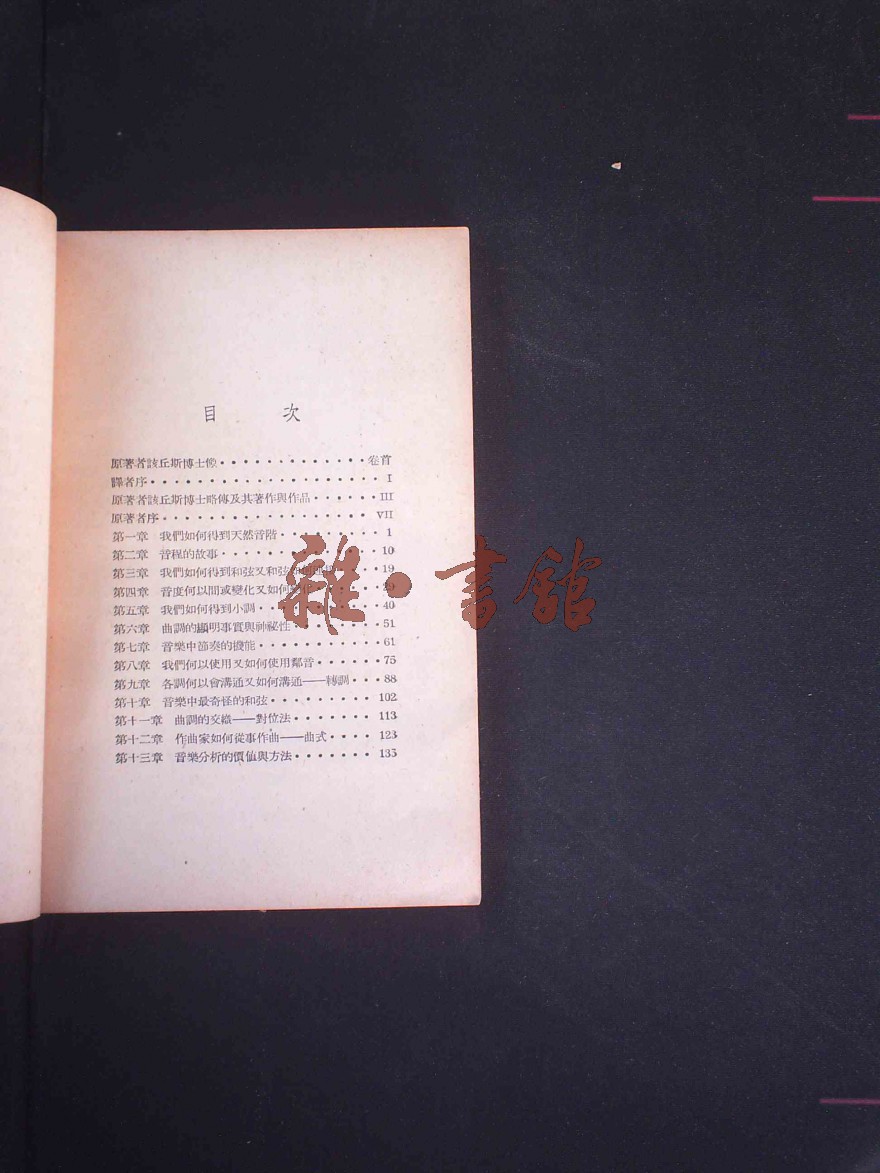 目　次
原著者該丘斯博士像・・・・・・・・・・・・・卷首
譯者序・・・・・・・・・・・・・・・・・・I
原著者該丘斯博士略傳及其著作與作品・・・・・III
原著者序・・・・・・・・・・・・・・・・・VII
第一章　我們如何得到天然音階・・・・・・・・1
第二章　音程的故事・・・・・・・・・・・・10
第三章　我們如何得到和弦又和弦・・19
第四章　音度何以間或變化又如何變化・・・・29
第五章　我們如何得到小調・・・・・・・・・40
第六章　曲調的顯明事實與神祕性・・・・・・51
第七章　音樂中節奏的機能・・・・・・・・・61
第八章　我們何以使用又如何使用鄰音・・・・75
第九章　各調何以會溝通又如何溝通——轉調・・・88
第十章　音樂中最奇怪的和弦・・・・・・・・102
第十一章　曲調的交織——對位法・・・・・・・113
第十二章　作曲家如何從事作曲——曲式・・・・123
第十三章　音樂分析的價值與方法・・・・・・・135
雜・書館